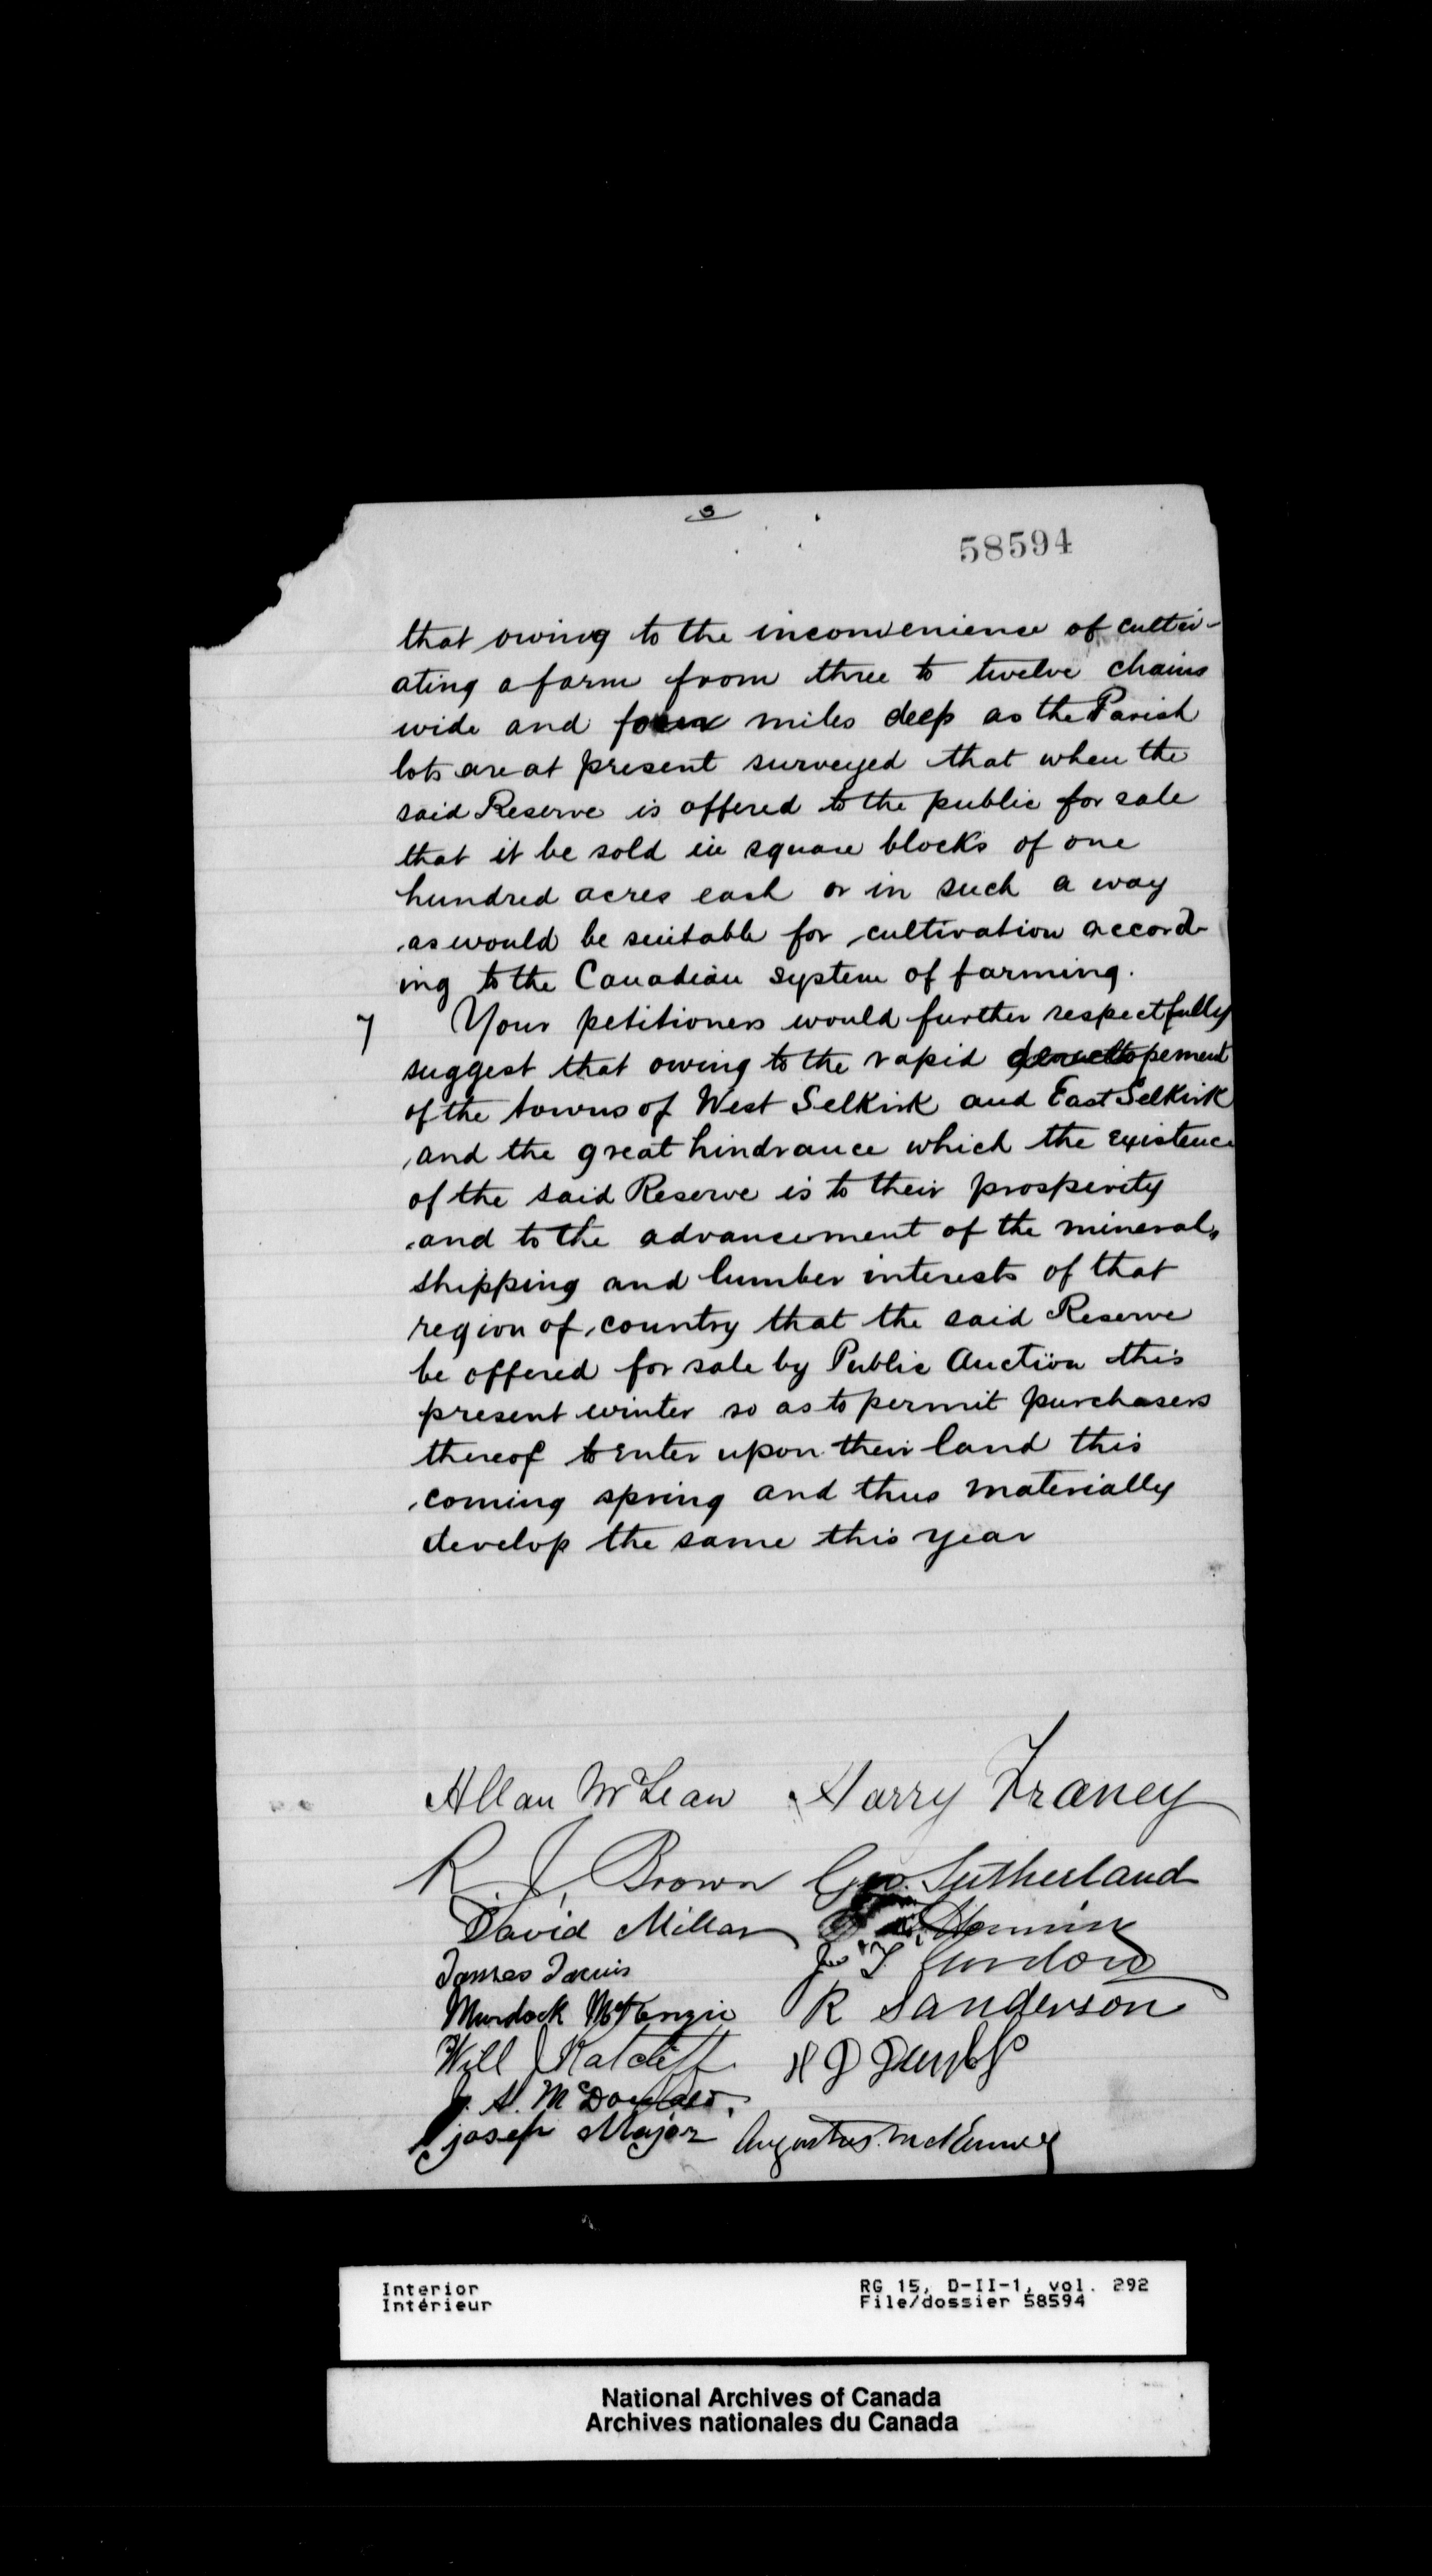 3
58594
that owing to the inconvenience of cultiv-
ating a farm from three to twelve chains
wide and four miles deep as the Parish
lots are at present surveyed that when the
said Reserve is offered to the public for sale
that it be sold in square blocks of one
hundred acres each or in such a way
as would be suitable for cultivation accord-
ing to the Canadian system of farming.
7 Your petitioners would further respectfully
suggest that owing to the rapid developement
of the towns of West Selkirk and East Selkirk
and the great hindrance which the existence
of the said Reserve is to their prosperity
and to the advancement of the mineral,
shipping and lumber interests of that
region of country that the said Reserve
be offered for sale by Public Auction this
present winter so as to permit purchasers
thereof to enter upon their land this
coming spring and thus materially
develop the same this year
Allan McLean Harry Franey
R. J. Brown Geo. Sutherland
David Millar
James
Gordon
Murdock McKenzie R Sanderson
Will J Ratcliff
J. S. McDonald.
Joseph Major Augustus McKenney
Interior RG 15, D-II-1, vol. 292
Intérieur File/dossier 58594
National Archives of Canada
Archives nationales du Canada